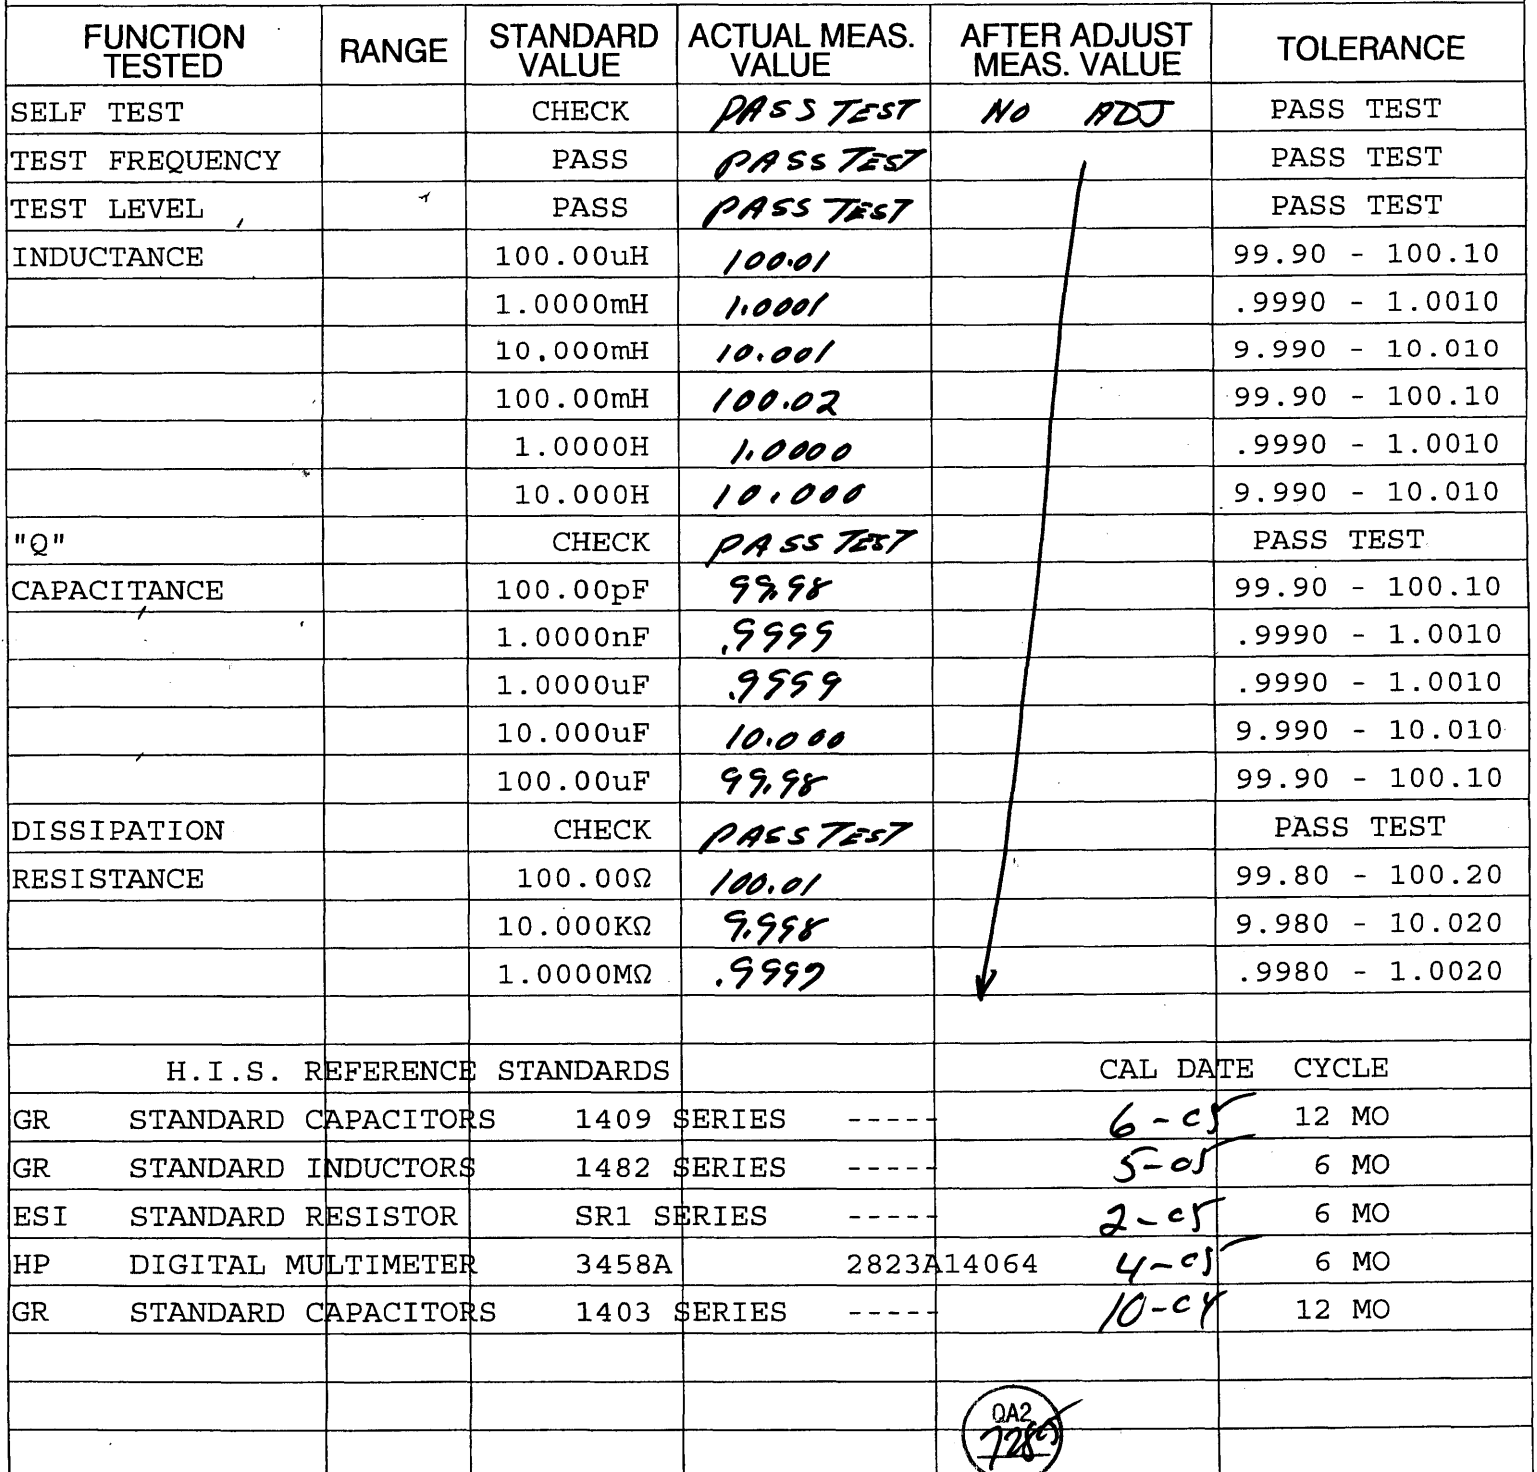 FUNCTION TESTED RANGE STANDARD VALUE ACTUAL MEAS. VALUE AFTER ADJUST MEAS. VALUE TOLERANCE
SELF TEST CHECK PASS TEST NO ADJ PASS TEST
TEST FREQUENCY PASS PASS TEST PASS TEST
TEST LEVEL PASS PASS TEST PASS TEST
INDUCTANCE 100.00uH 100.01 99.90 - 100.10
1.0000mH 1.0001 .9990 - 1.0010
10.000mH 10.001 9.990 - 10.010
100.00mH 100.02 99.90 - 100.10
1.0000H 1.0000 .9990 - 1.0010
10.000H 10.000 9.990 - 10.010
"Q" CHECK PASS TEST PASS TEST
CAPACITANCE 100.00pF 99.98 99.90 - 100.10
1.0000nF .9999 .9990 - 1.0010
1.0000uF .9999 .9990 - 1.0010
10.000uF 10.000 9.990 - 10.010
100.00uF 99.98 99.90 - 100.10
DISSIPATION CHECK PASS TEST PASS TEST
RESISTANCE 100.00Ω 100.01 99.80 - 100.20
10.000KΩ 9.998 9.980 - 10.020
1.0000MΩ .9999 .9980 - 1.0020
H.I.S. REFERENCE STANDARDS CAL DATE CYCLE
GR STANDARD CAPACITORS 1409 SERIES ----- 6-05 12 MO
GR STANDARD INDUCTORS 1482 SERIES ----- 5-05 6 MO
ESI STANDARD RESISTOR SR1 SERIES ----- 2-05 6 MO
HP DIGITAL MULTIMETER 3458A 2823A14064 4-05 6 MO
GR STANDARD CAPACITORS 1403 SERIES ----- 10-04 12 MO
QA2